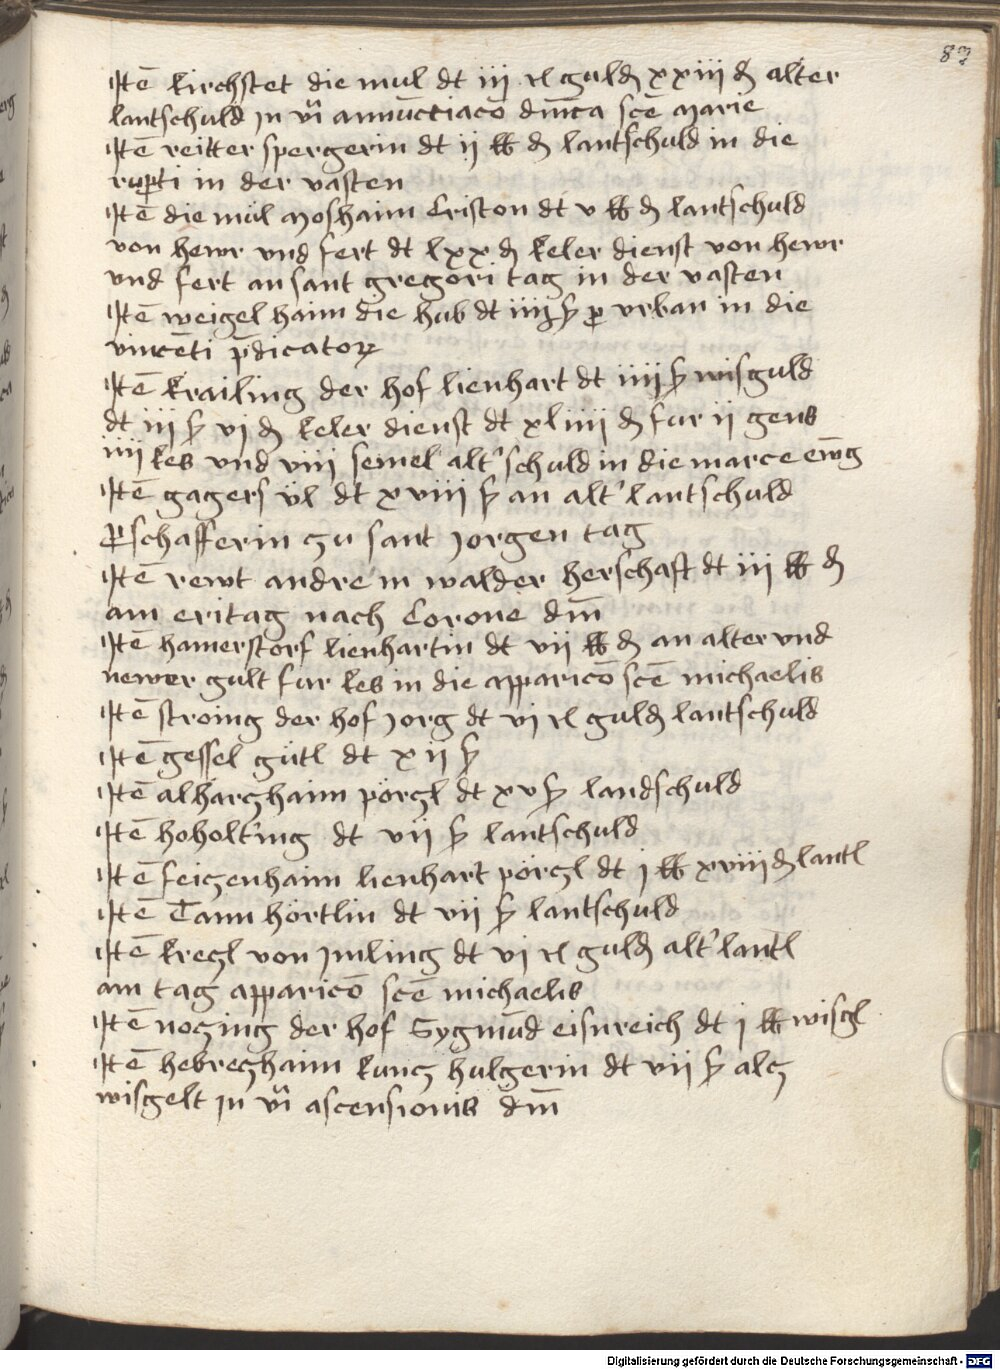 83
Itē kirchstet die mul dt iij rl guldn xxiij d alter
lantschuld jn vi annucciacō dmca scē marie
Itē reitter spergerin dt ij lb d lantschuld in die
rupti in der vasten
Itē die mül moshaim Criston dt v lb d lantschuld
von hewr vnd fert dt lxx d keler dienst von hewr
vnd fert an sant gregori tag in der vasten
Itē weigelhaim die hub dt iiij ß p vrban in die
vincēti pdicator
Itē krailing der hof lienhart dt iiij ß wisguld
dt iij ß vj d keler dienst dt xl iiij d fur ij gens
iiij kes vnd viij semel alt' schuld in die marce ewg
Itē gagers ül dt xviij ß an alt' lantschuld
schafferin zu sant jorgen tag
Itē rewt andre in walder herschaft dt iij lb d
am eritag nach Corone dm
Itē hamerstorf lienhartin dt vij lb d an alter vnd
newer gult fur kes in die apparicō scē michaelis
Itē stroing der hof jorg dt vj rl guldn lantschuld
Itē gessel gütl dt xij ß
Itē alharzhaim pörzl dt xv ß landschuld
Itē hoholting dt vij ß lantschuld
Itē feizenhaim lienhart pörzl dt j lb xviij d lantl
Itē Tann hörtlin dt vij ß lantschuld
Itē krezl von jmling dt vj rl guldn alt' lantl
am tag apparicō scē michaelis
Itē nozing der hof Sygmund eisnreich dt j lb wisgl
Itē hebrezhaim kunz hulgerin dt vij ß alz
wisgelt jn vi ascensionis dm
Digitalisierung gefördert durch die Deutsche Forschungsgemeinschaft - DFG